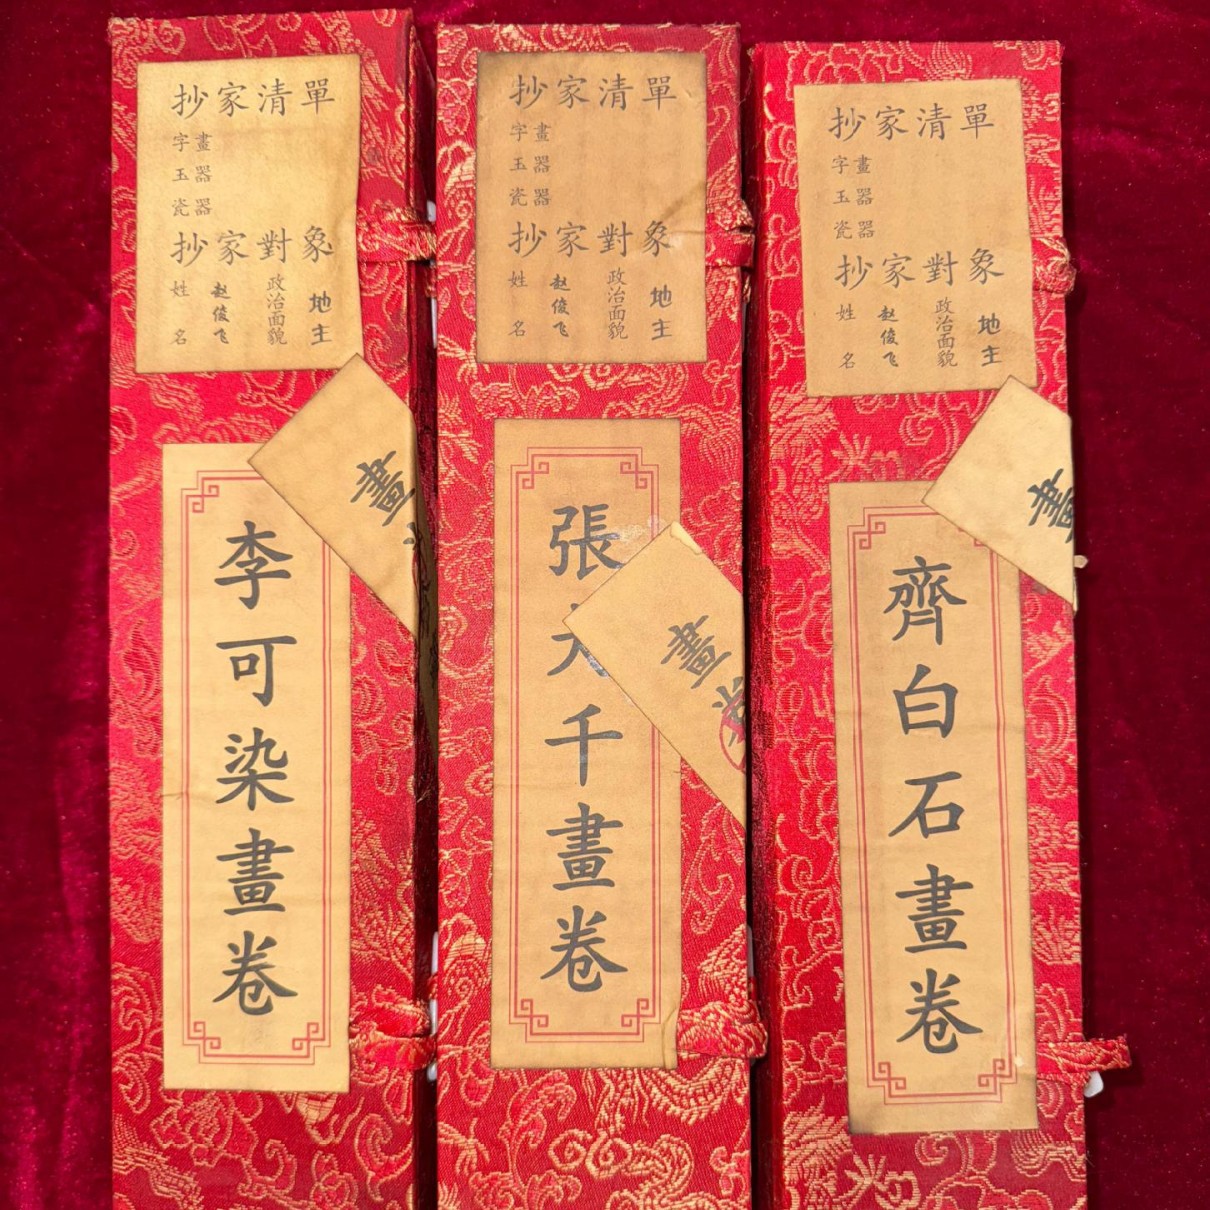 抄家清單
字畫
玉器
瓷器
抄家對象
姓名 赵俊飞 政治面貌 地主
畫
李可染畫卷
抄家清單
字畫
玉器
瓷器
抄家對象
姓名 赵俊飞 政治面貌 地主
畫
張大千畫卷
抄家清單
字畫
玉器
瓷器
抄家對象
姓名 赵俊飞 政治面貌 地主
畫
齊白石畫卷